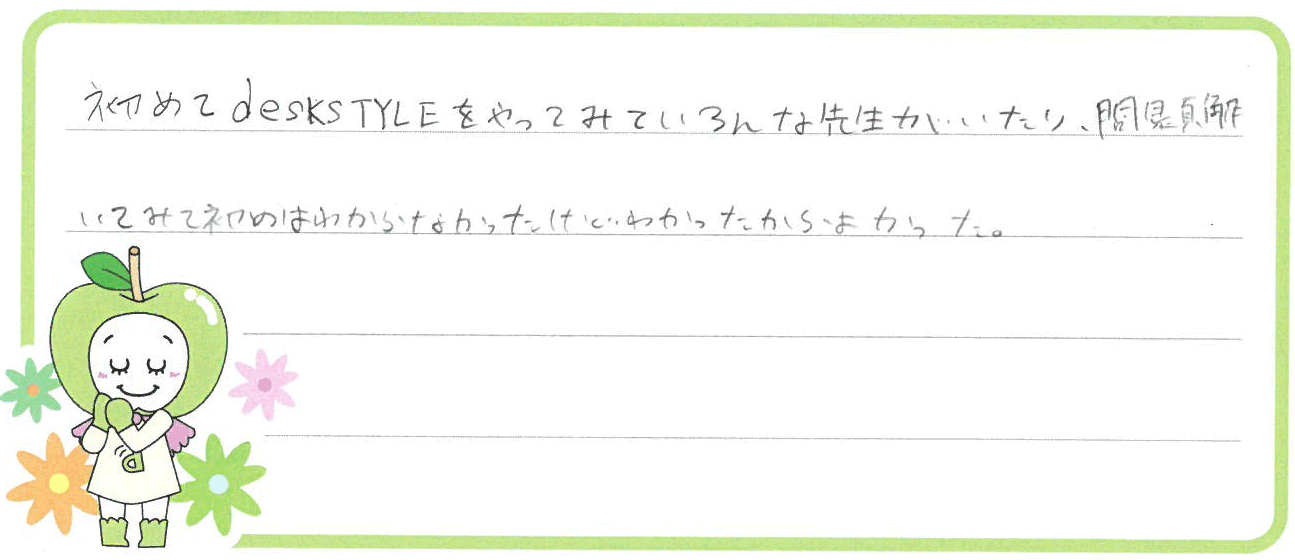 初めてdeskSTYLEをやってみていろんな先生がいたり、問題解
いてみて初めはわからなかったけどわかったからよかった。